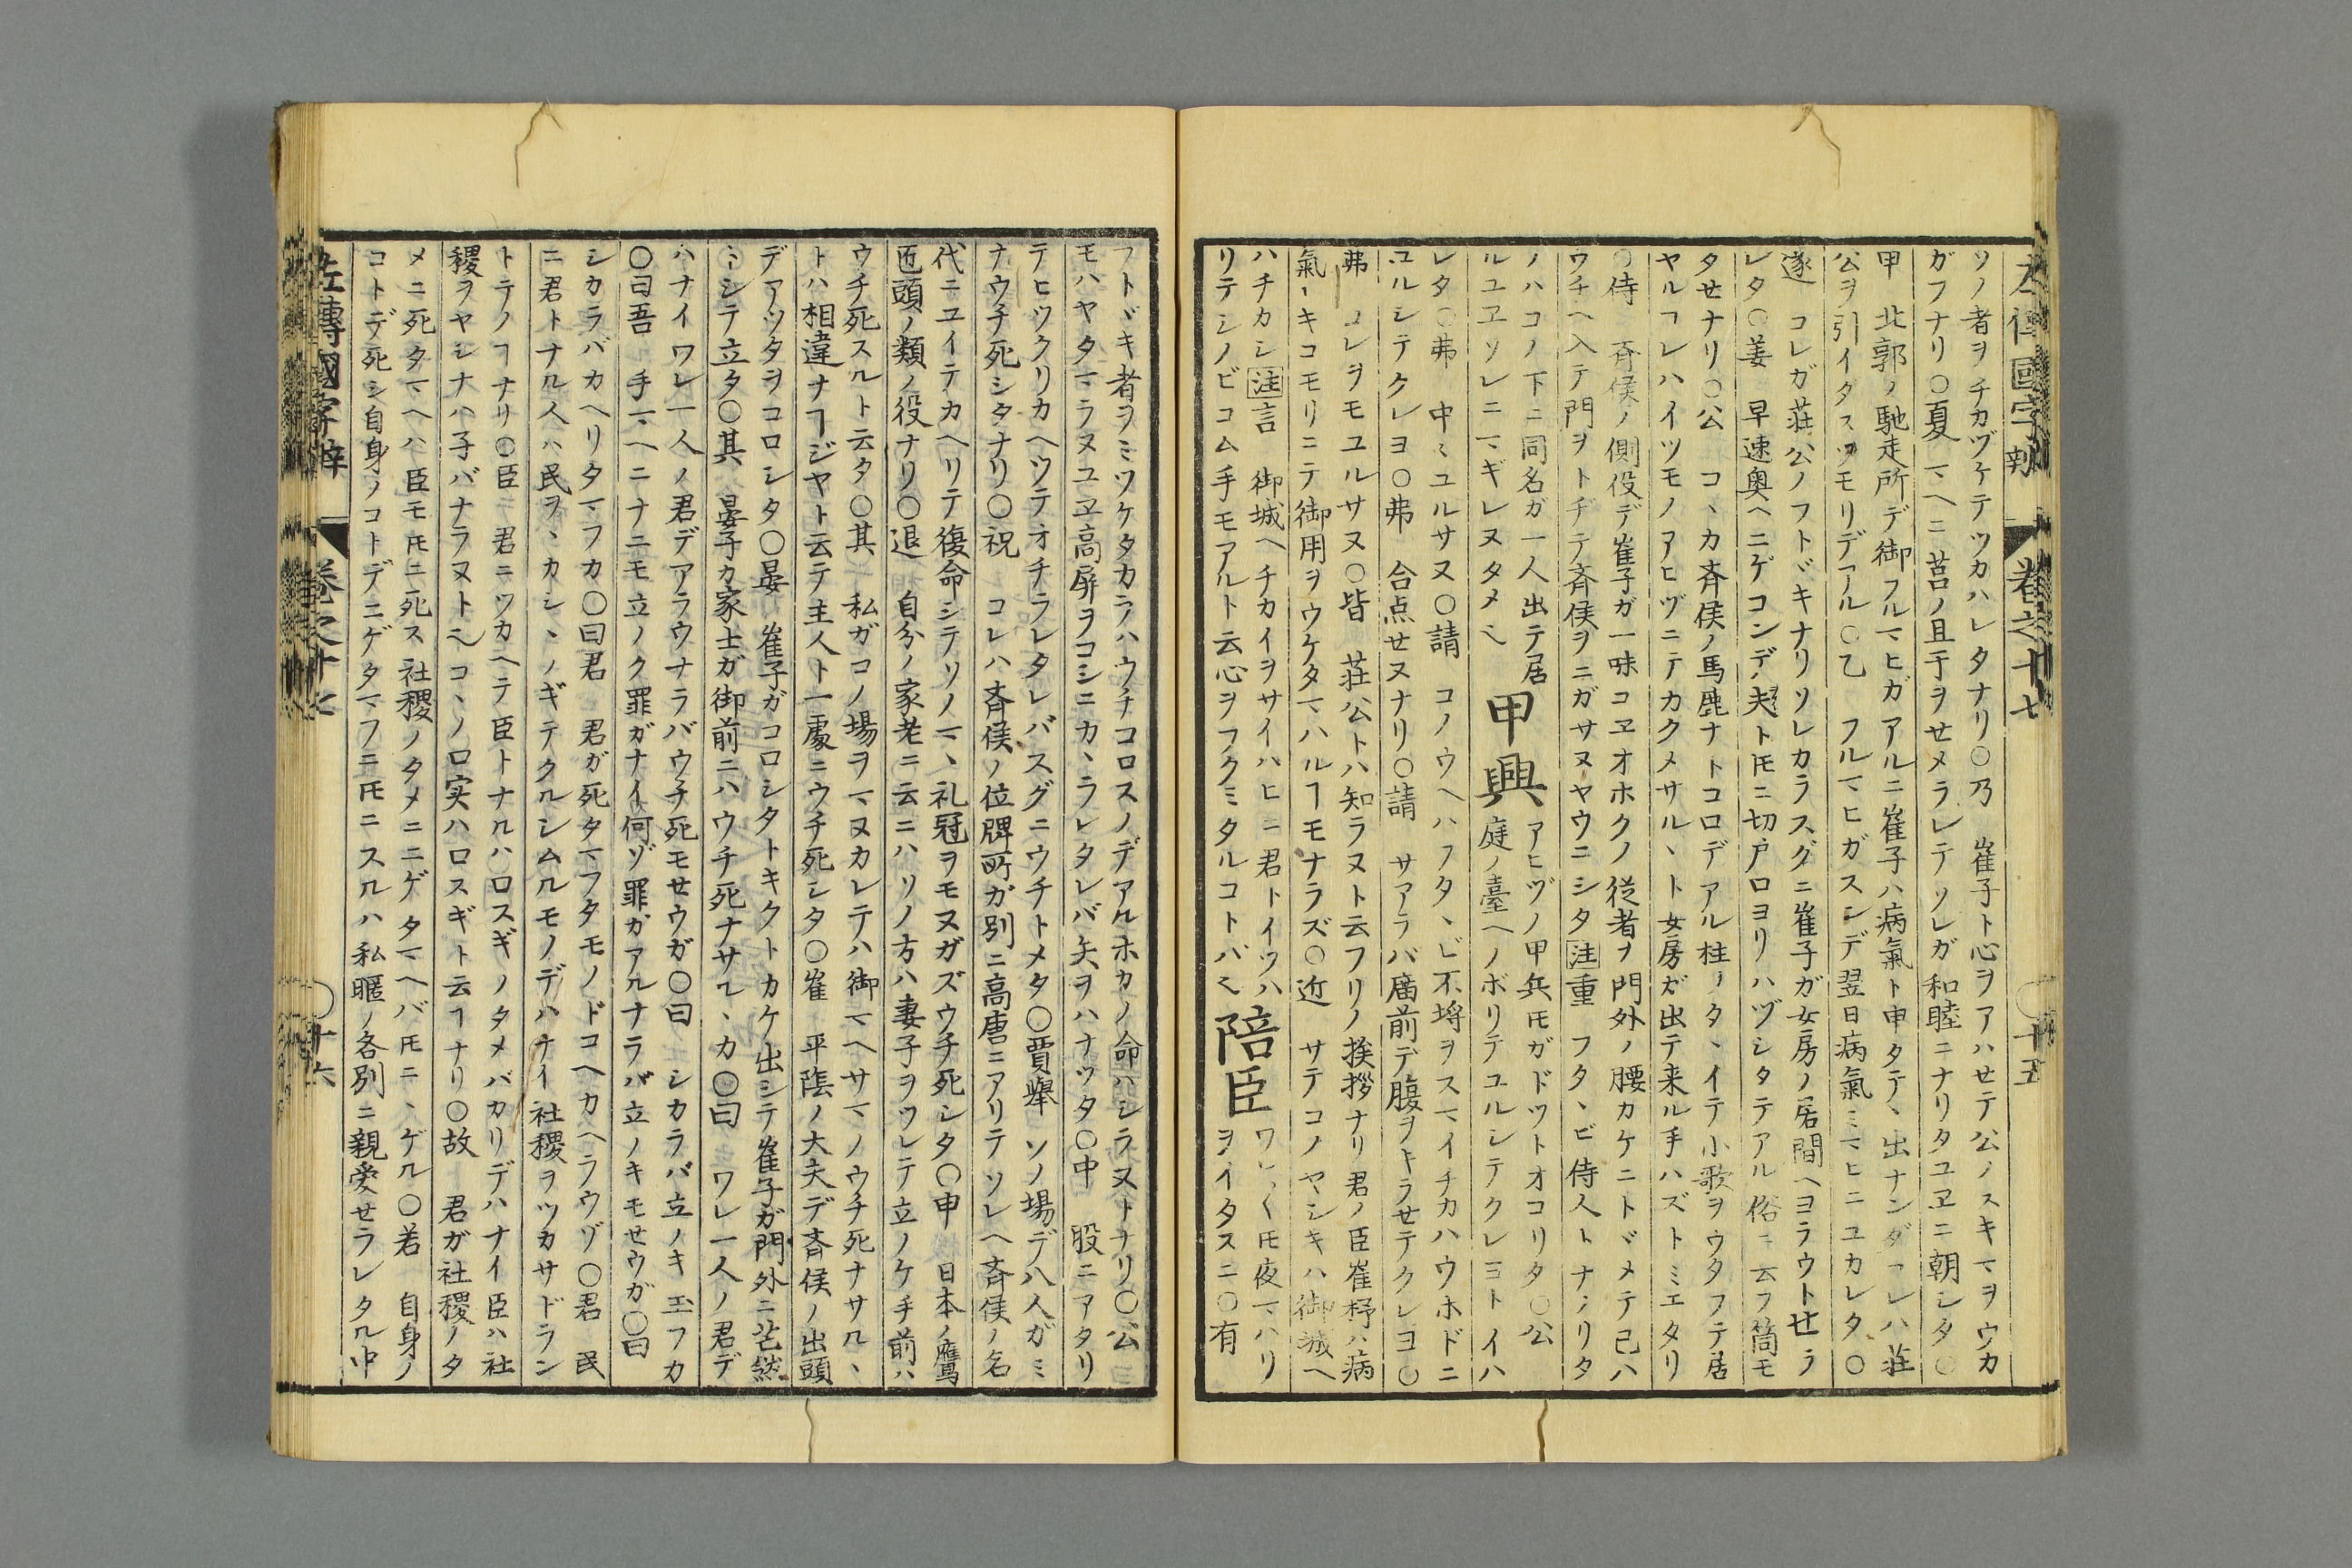 左傳國字辯 巻之十七 〇十五
ソノ者ヲチカヅケテツカハレタナリ〇乃 崔子ト心ヲアハセテ公ノスキマヲウカ
ガフナリ〇夏 マヘニ莒ノ且于ヲセメラレテソレガ和睦ニナリタユヱニ朝シタ〇
甲 北郭ノ馳走所デ御フルマヒガアルニ崔子ハ病氣ト申タテヽ出ナンダコレハ荘
公ヲ引イタスツモリデアル〇乙 フルマヒガスンデ翌日病氣ミマヒニユカレタ〇
遂 コレガ荘公ノフトヾキナリソレカラスグニ崔子ガ女房ノ居間ヘヨラウトせラ
レタ〇姜 早速奥ヘニゲコンデ夫トモニ切戸口ヨリハヅシタテアル俗ニ云フ筒モ
タせナリ〇公 コヽカ斉侯ノ馬鹿ナトコロデアル柱ヲタヽイテ小歌ヲウタフテ居
ヤルコレハイツモノアヒヅニテカクメサルヽト女房ガ出テ来ル手ハズトミエタリ
〇侍 斉侯ノ側役デ崔子ガ一味コヱオホクノ従者ヲ門外ノ腰カケニトヾメテ己ハ
ウチヘ入テ門ヲトヂテ斉侯ヲニガサヌヤウニシタ注重 フタヽビ侍人トナノリタ
ノハコノ下ニ同名ガ一人出テ居
ルユヱソレニマギレヌタメ也 甲興 アヒヅノ甲兵モガドツトオコリタ〇公
庭ノ臺ヘノボリテユルシテクレヨトイハ
レタ〇弗 中ミユルサヌ〇請 コノウヘハフタヽビ不埒ヲスマイチカハウホドニ
ユルシテクレヨ〇弗 合点せヌナリ〇請 サアラバ廟前デ腹ヲキラせテクレヨ〇
弗 コレヲモユルサヌ〇皆 荘公トハ知ラヌト云フリノ挨拶ナリ君ノ臣崔杼ハ病
氣ヒキコモリニテ御用ヲウケタマハルヿモナラズ〇近 サテコノヤシキハ御城ヘ
ハチカシ注言 御城ヘチカイヲサイハヒニ君トイツハ
リテシノビコム手モアルト云心ヲフクミタルコトバ也 陪臣 ワレ〳〵モ夜マハリ
ヲイタスニ〇有
フトヾキ者ヲミツケタカラハウチコロスノデアルホカノ命ハシラヌトナリ〇公
モハヤタマラヌユヱ高屏ヲコシニカヽラレタレバ矢ヲハナツタ〇中 股ニアタリ
テヒツクリカヘツテオチラレタレバスグニウチトメタ〇賈舉 ソノ場デ八人ガミ
ナウチ死シタナリ〇祝 コレハ斉侯ノ位牌所ガ別ニ高唐ニアリテソレヘ斉侯ノ名
代ニユイテカヘリテ復命シテソノマヽ礼冠ヲモヌガズウチ死シタ〇申 日本ノ鷹
匠頭ノ類ノ役ナリ〇退 自分ノ家老ニ云ニハソノ方ハ妻子ヲツレテ立ノケ手前ハ
ウチ死スルト云タ〇其 私ガコノ場ヲマヌカレテハ御マヘサマノウチ死ナサルヽ
トハ相違ナヿジヤト云テ主人ト一處ニウチ死シタ〇崔 平陰ノ大夫デ斉侯ノ出頭
デアツタヲコロシタ〇晏 崔子ガコロシタトキクトカケ出シテ崔子ガ門外ニ茫然
トシテ立タ〇其 晏子カ家士ガ御前ニハウチ死ナサルヽカ〇曰 ワレ一人ノ君デ
ハナイワレ一人ノ君デアラウナラバウチ死モせウガ〇曰 シカラバ立ノキ玉フカ
〇曰吾 手マヘニナニモ立ノク罪ガナイ何ゾ罪ガアルナラバ立ノキモせウガ〇曰
シカラバカヘリタマフカ〇曰君 君ガ死タマフタモノドコヘカヘラウゾ〇君 民
ニ君トナル人ハ民ヲヽカシヽノギテクルシムルモノデハナイ社稷ヲツカサドラン
トテノヿナリ〇臣 君ニツカヘテ臣トナルハ口スギノタメバカリデハナイ臣ハ社
稷ヲヤシナハ子バナラヌト也コヽノ口実ハ口スギト云ヿナリ〇故 君ガ社稷ノタ
メニ死タマヘハ臣モトモニ死ス社稷ノタメニニゲタマヘバトモニヽゲル〇若 自身ノ
コトデ死シ自身ノコトデニゲタマフニトモニスルハ私暱ノ各別ニ親愛せラレタル中
左傳國字辯 巻之十七 〇十六